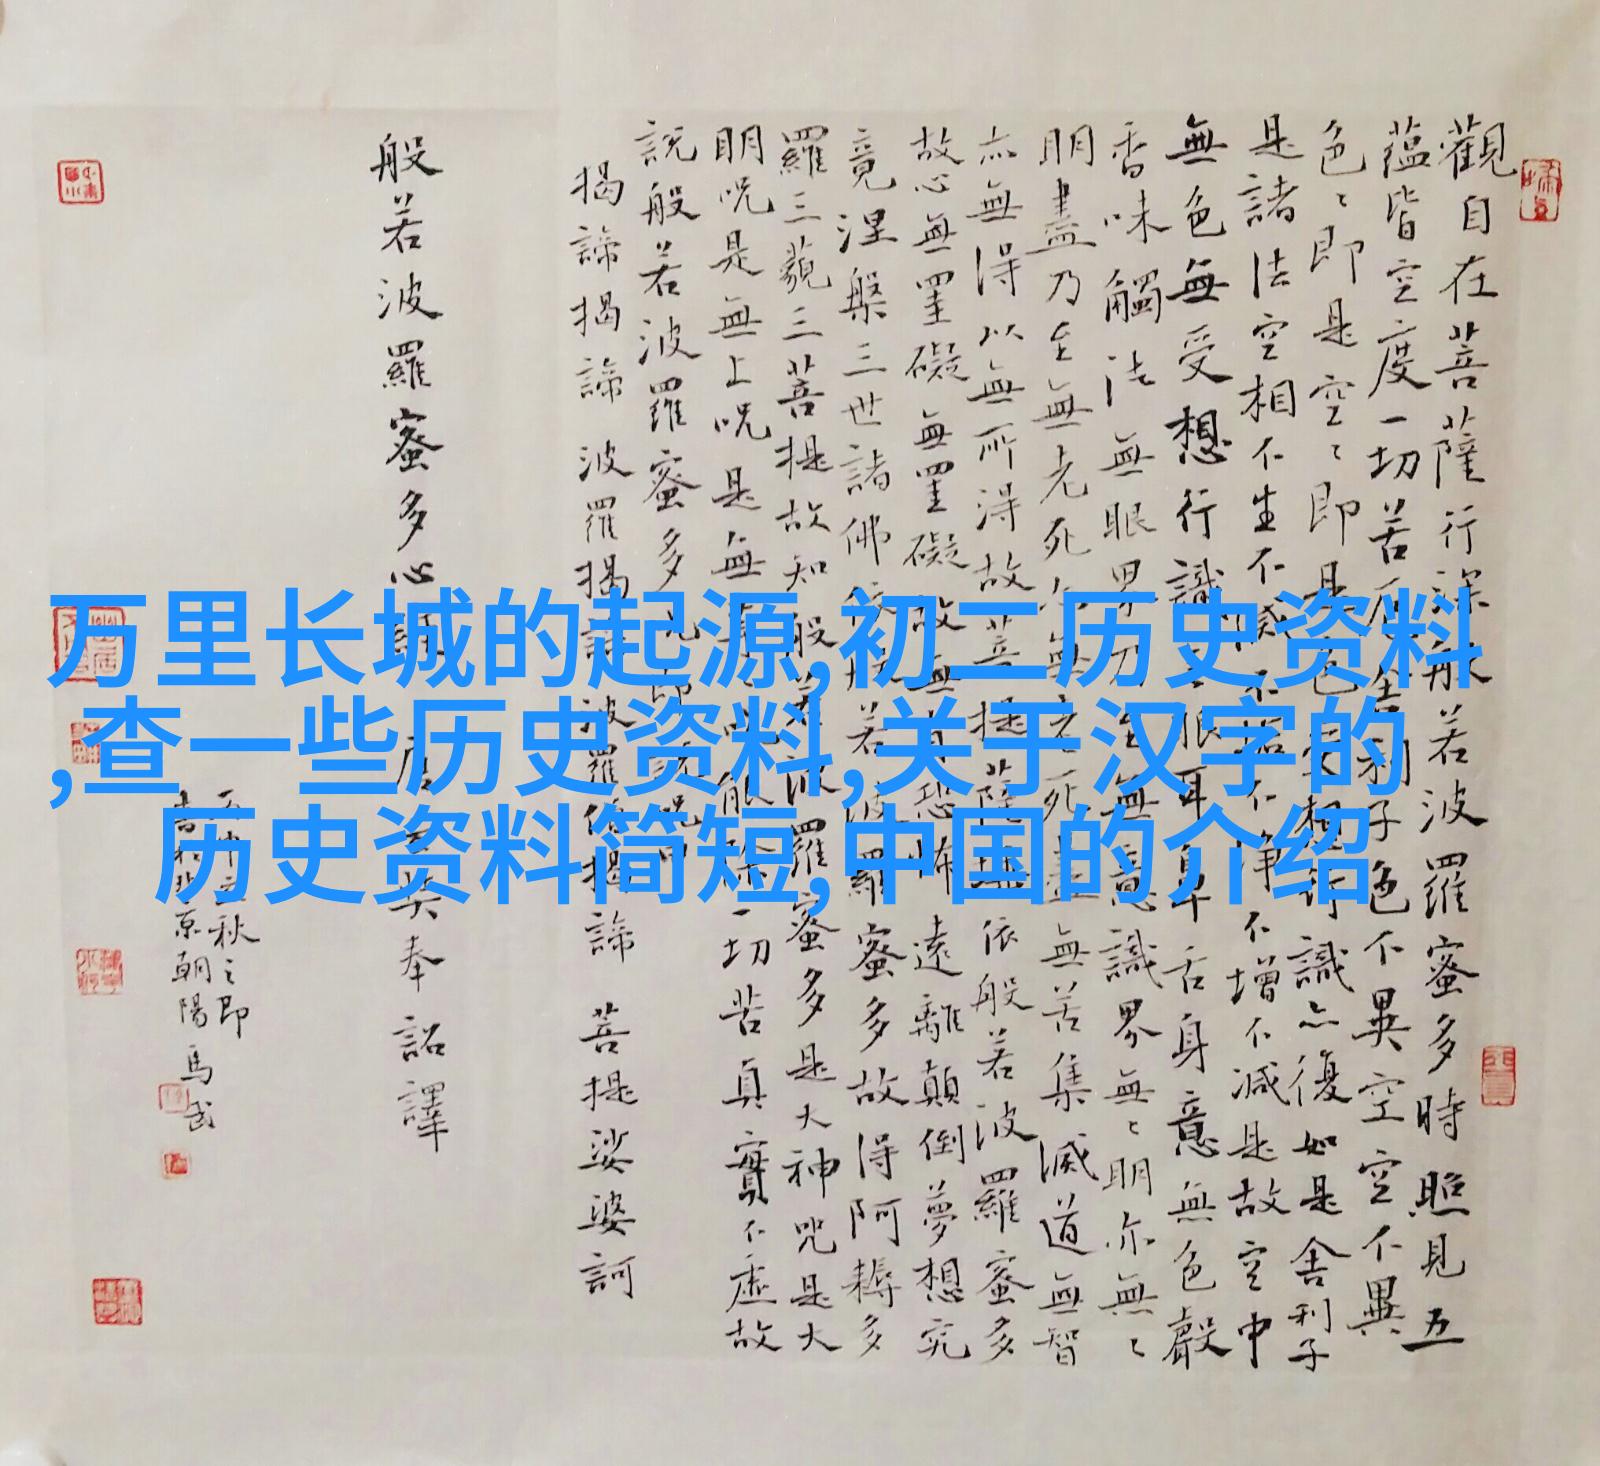 觀自在菩薩行深般若波羅蜜多時照見五
蘊皆空度一切苦厄舍利子色不異空空不異
色〻即是空〻即是色受想行識亦復如是舍利子
是諸法空相不生不滅不垢不淨不增不減是故空中
無色無受想行識無眼耳鼻舌身意無色聲
香味觸法無眼界乃至無意識界無〻明亦無〻
明盡乃至無老死亦無老死盡無苦集滅道無智
亦無得以無所得故菩提薩埵依般若波羅蜜多
故心無罣礙無罣礙故無有恐怖遠離顛倒夢想究
竟涅槃三世諸佛依般若波羅蜜多故得阿耨多
羅三藐三菩提故知般若波羅蜜多是大神咒是大
明呪是無上呪是無等〻呪能除一切苦真實不虛故
說般若波羅蜜多咒即說咒曰
揭諦揭諦 波羅揭諦 波羅僧揭諦 菩提娑婆訶
般若波羅蜜多心經 唐玄奘奉詔譯
秋之即
書於北京朝陽 馬武
万里长城的起源,初二历史资料
,查一些历史资料,关于汉字的
历史资料简短,中国的介绍